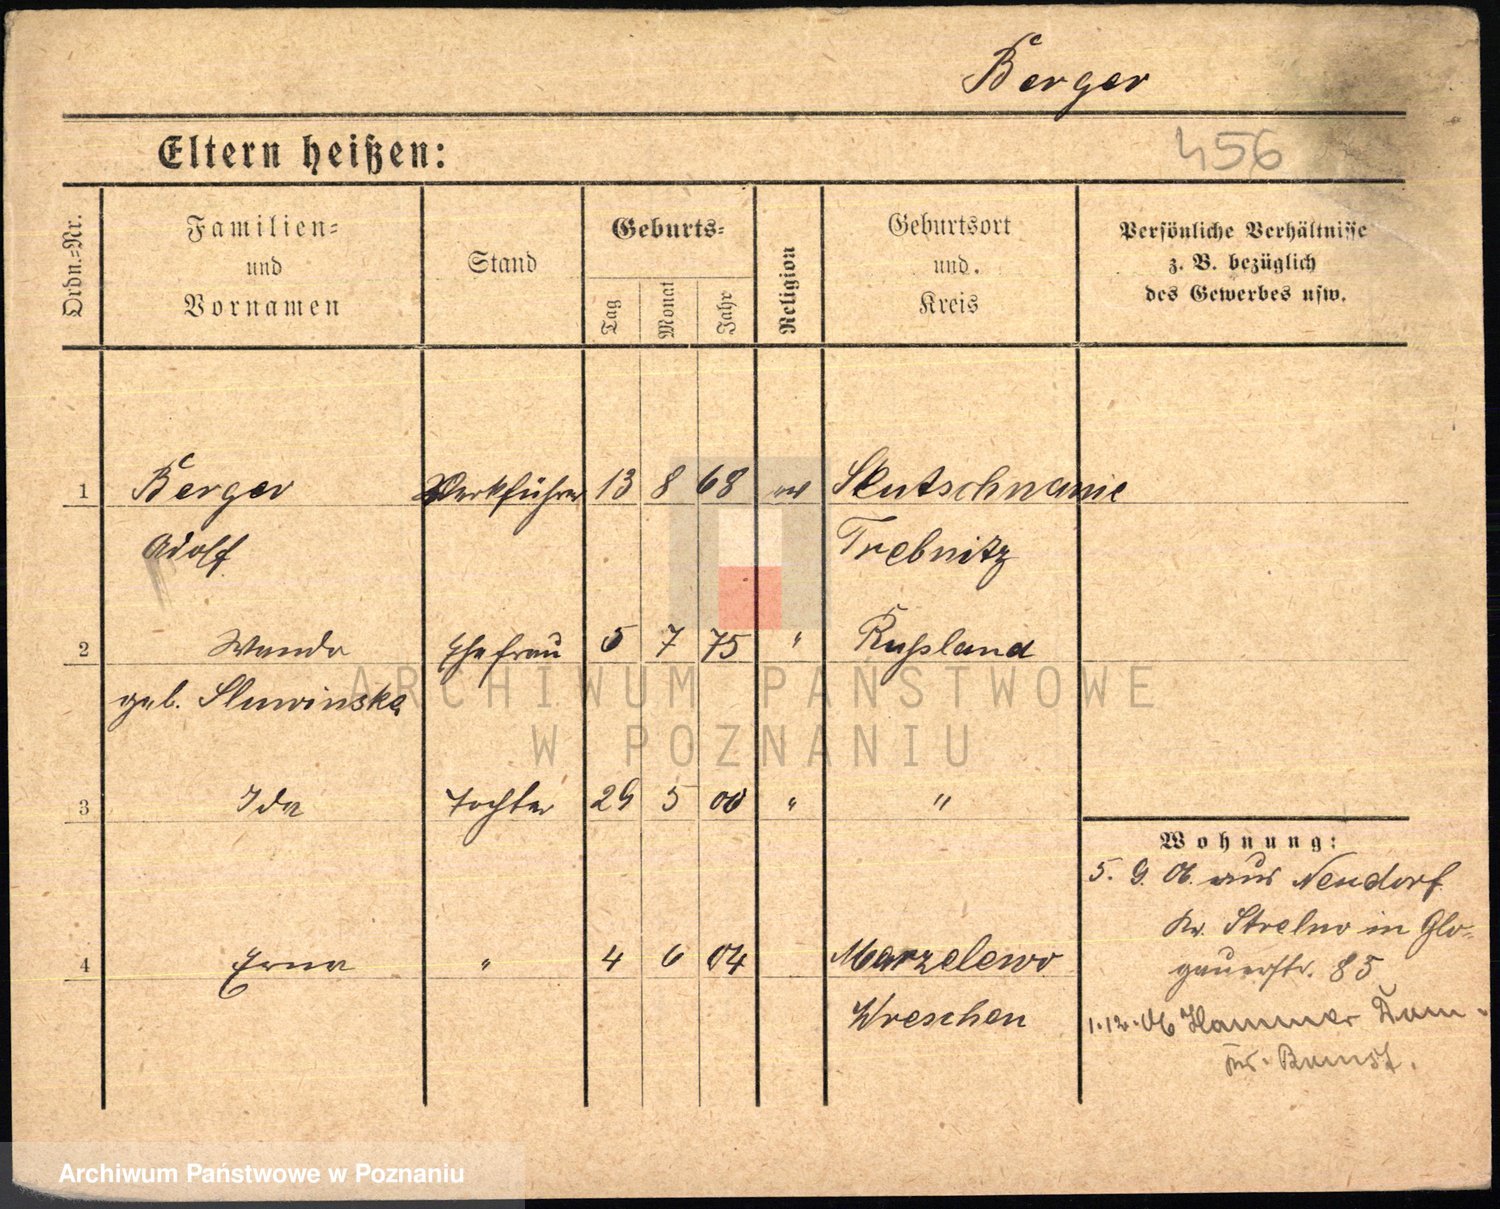 Berger
Eltern heißen:
456
Ordn.-Nr.
Familien-
und
Vornamen
Stand
Geburts-
Tag
Monat
Jahr
Religion
Geburtsort
und
Kreis
Persönliche Verhältnisse
z. B. bezüglich
des Gewerbes usw.
1 Berger Werkführer 13 8 68 ev
Adolf Trebnitz
2 Wanda Ehefrau 5 7 75 " Rußland
geb. Sluwinska
3 Ida Tochter 29 5 00 " "
4 Erna " 4 6 04 Marzelewo
Wreschen
Wohnung:
5. 9. 06. aus Neudorf
Kr. Strelno in Glo-
gauerstr. 85
1.12.06 Hammer
Kr. Bomst.
ARCHIWUM PAŃSTWOWE
W POZNANIU
Archiwum Państwowe w Poznaniu